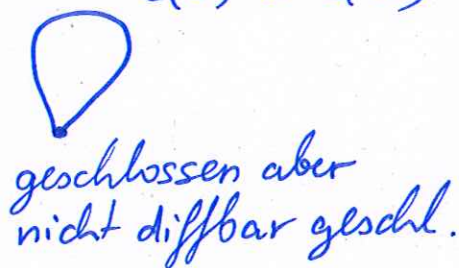 geschlossen aber
nicht diffbar geschl.